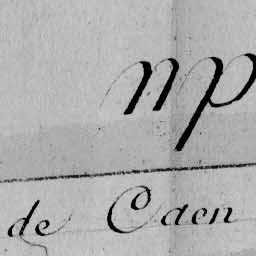 mp
de Caen